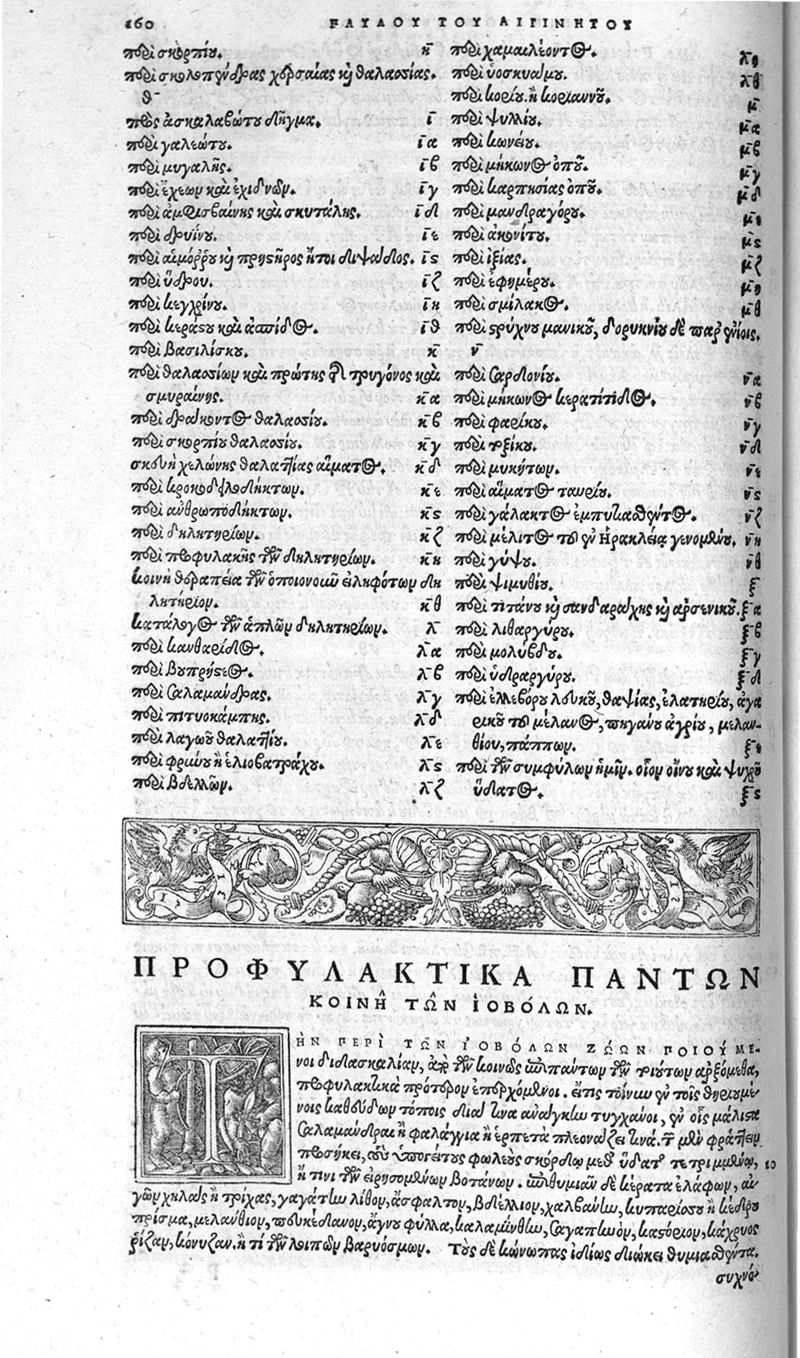 160 ΠΑΥΛΟΥ ΤΟΥ ΑΙΓΙΝΗΤΟΥ
περὶ σκορπίου. κ̄
περὶ σκολοπένδρας χερσαίας καὶ θαλασσίας.
θ̄
πρὸς ἀσκαλαβώτου δῆγμα. ῑ
περὶ γαλεώτου. ῑα
περὶ μυγαλῆς. ῑβ
περὶ ἔχεων καὶ ἐχιδνῶν. ῑγ
περὶ ἀμφισβαίνης καὶ σκυτάλης. ῑδ
περὶ δρυΐνου. ῑε
περὶ αἱμόρρου καὶ πρηστῆρος ἤτοι διψάδος. ῑς
περὶ ὕδρου. ῑζ
περὶ κεγχρίνου. ῑη
περὶ κεράστου καὶ ἀσπίδος. ῑθ
περὶ βασιλίσκου. κ̄
περὶ θαλασσίων καὶ πρώτης τῆς τρυγόνος καὶ
σμυραίνης. κ̄α
περὶ δράκοντος θαλασσίου. κ̄β
περὶ σκορπίου θαλασσίου. κ̄γ
σκευὴ χελώνης θαλαττίας αἵματος. κ̄δ
περὶ κροκοδειλοδήκτων. κ̄ε
περὶ ἀνθρωποδήκτων. κ̄ς
περὶ δηλητηρίων. κ̄ζ
περὶ προφυλακῆς τῶν δηλητηρίων. κ̄η
κοινὴ θεραπεία τῶν ὁποιονοῦν εἰληφότων δη
λητήριον. κ̄θ
κατάλογος τῶν ἁπλῶν δηλητηρίων. λ̄
περὶ κανθαρίδος. λ̄α
περὶ βουπρήστεος. λ̄β
περὶ σαλαμάνδρας. λ̄γ
περὶ πιτυοκάμπης. λ̄δ
περὶ λαγωοῦ θαλαττίου. λ̄ε
περὶ φρύνου ἢ ἑλιοβατράχου. λ̄ς
περὶ βδελλῶν. λ̄ζ
περὶ χαμαιλέοντος. λ̄η
περὶ ὑοσκυάμου. λ̄θ
περὶ κορίου ἢ κοριάννου. μ̄
περὶ ψυλλίου. μ̄α
περὶ κωνείου. μ̄β
περὶ μήκωνος ὀποῦ. μ̄γ
περὶ καρπησίας ὀποῦ. μ̄δ
περὶ μανδραγόρου. μ̄ε
περὶ ἀκονίτου. μ̄ς
περὶ ἰξίας. μ̄ζ
περὶ ἐφημέρου. μ̄η
περὶ σμίλακος. μ̄θ
περὶ στρύχνου μανικοῦ, δορυκνίου δὲ παρ' ἐνίοις.
ν̄
περὶ σαρδονίου. ν̄α
περὶ μήκωνος κερατίτιδος. ν̄β
περὶ φαρικοῦ. ν̄γ
περὶ τοξικοῦ. ν̄δ
περὶ μυκήτων. ν̄ε
περὶ αἵματος ταυρείου. ν̄ς
περὶ γάλακτος ἐμπυτιασθέντος. ν̄ζ
περὶ μέλιτος τοῦ ἐν Ἡρακλείᾳ γενομένου. ν̄η
περὶ γύψου. ν̄θ
περὶ ψιμυθίου. ξ̄
περὶ τιτάνου καὶ σανδαράχης καὶ ἀρσενικοῦ. ξ̄α
περὶ λιθαργύρου. ξ̄β
περὶ μολύβδου. ξ̄γ
περὶ ὑδραργύρου. ξ̄δ
περὶ ἑλλεβόρου λευκοῦ, θαψίας, ἐλατηρίου, ἀγα
ρικοῦ τοῦ μέλανος, πηγάνου ἀγρίου, μελαν-
θίου, πάππων. ξ̄ε
περὶ τῶν συμφύλων ἡμῖν. οἷον οἴνου καὶ ψυχροῦ
ὕδατος. ξ̄ς
ΠΡΟΦΥΛΑΚΤΙΚΑ ΠΑΝΤΩΝ
ΚΟΙΝΗ͂ ΤΩ͂Ν ἸΟΒΌΛΩΝ.
ΤῊΝ ΠΕΡῚ ΤΩ͂Ν ἸΟΒΌΛΩΝ ΖΏΩΝ ΠΟΙΟΎΜΕ-
νοι διδασκαλίαν, ἀπὸ τῶν κοινῶς ἐπὶ πάντων τῶν τοιούτων ἀρξόμεθα,
προφυλακτικὰ πρότερον ἐπερχόμενοι. εἴ τις τοίνυν ἐν τοῖς θηριουμέ-
νοις καθεύδων τόποις διά τινα ἀνάγκην τυγχάνοι, ἐν οἷς μάλιστα
σαλαμάνδραι ἢ φαλάγγια ἢ ἑρπετὰ πλεονάζει τινά. τὸ μὲν φράττειν
προσήκει, τοὺς ὑπογείους φωλεοὺς σκόρδῳ μεθ' ὕδατος τετριμμένῳ, 10
ἤ τινι τῶν εἰρησομένων βοτανῶν. ὑποθυμιᾶν δὲ κέρατα ἐλάφων, αἰ-
γῶν χηλὰς ἢ τρίχας, γαγάτην λίθον, ἄσφαλτον, βδέλλιον, χαλβάνην, κυπαρίσσου ἢ κέδρου
πρίσμα, μελάνθιον, πευκέδανον, ἄγνου φύλλα, καλαμίνθην, σαγαπηνὸν, καστόριον, κάχρυος
ῥίζαν, κόνυζαν. ἤ τι τῶν λοιπῶν βαρυόσμων. Τοὺς δὲ κώνωπας ἰδίως διώκει θυμιαθέντα.
συχνό